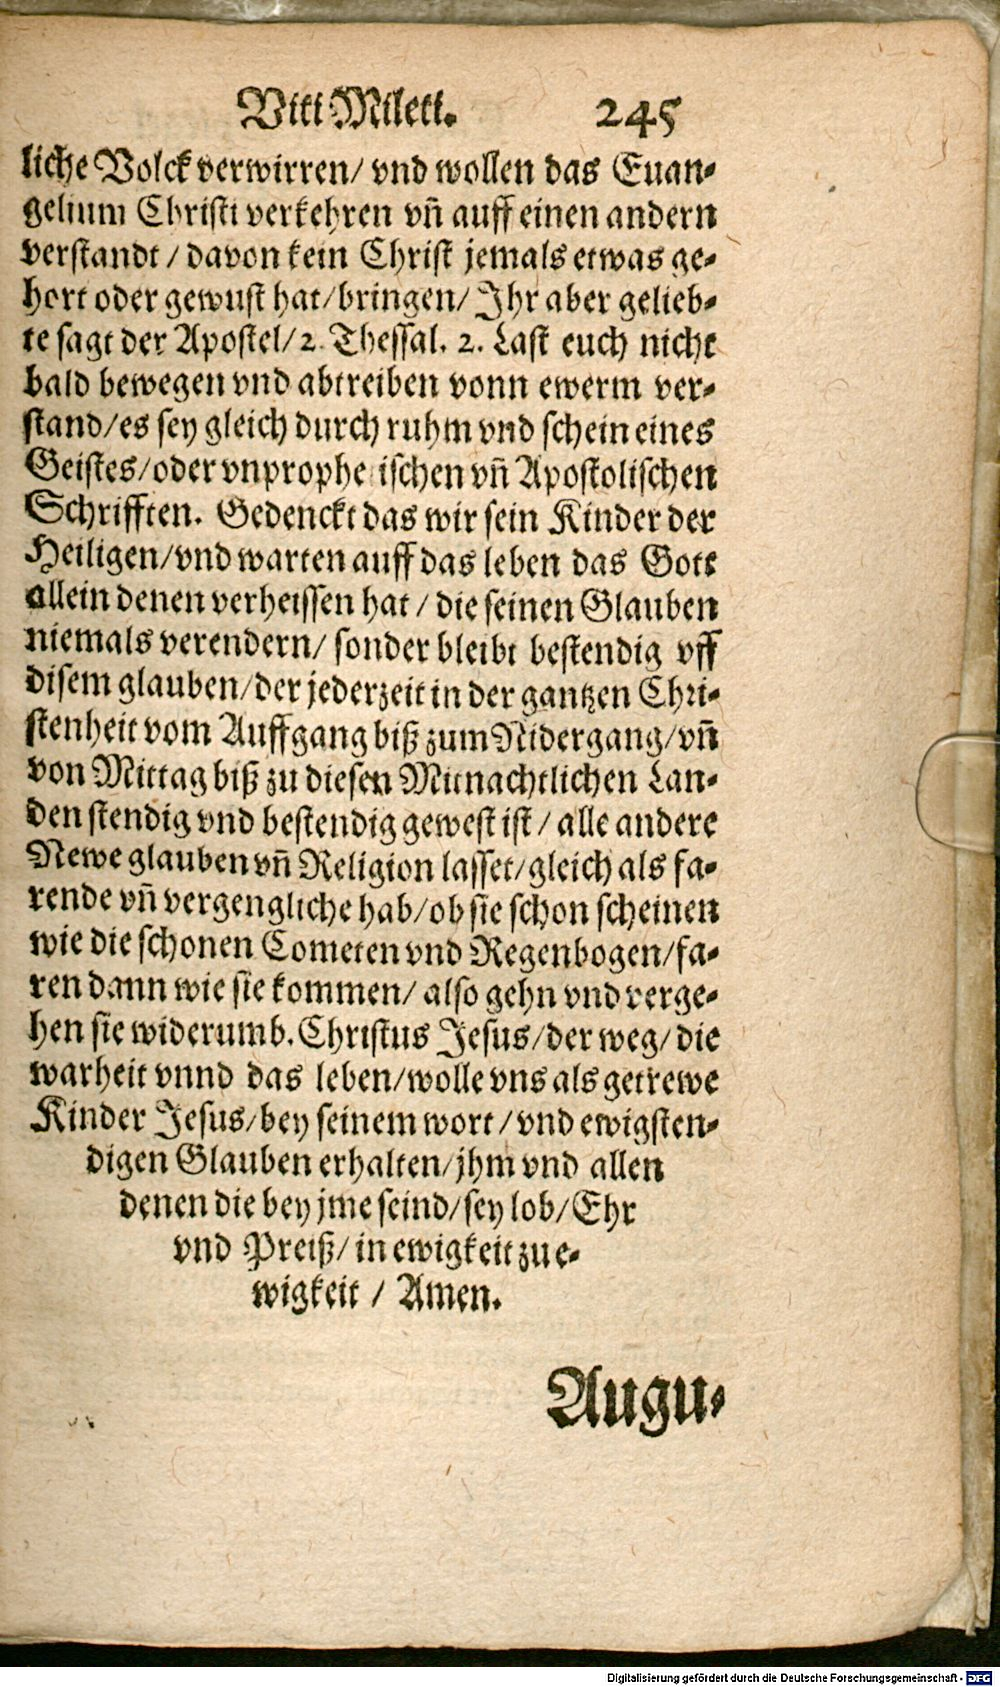 Viti Mileti. 245
liche Volck verwirren/ vnd wollen das Euan-
gelium Christi verkehren vñ auff einen andern
verstandt / davon kein Christ jemals etwas ge-
hort oder gewust hat/bringen/ Ihr aber gelieb-
te sagt der Apostel/2. Thessal. 2. Last euch nicht
bald bewegen vnd abtreiben vonn ewerm ver-
stand/es sey gleich durch ruhm vnd schein eines
Geistes/oder vnprophe ischen vñ Apostolischen
Schrifften. Gedenckt das wir sein Kinder der
Heiligen/vnd warten auff das leben das Gott
allein denen verheissen hat / die seinen Glauben
niemals verendern/ sonder bleibt bestendig vff
disem glauben/der jederzeit in der gantzen Chri-
stenheit vom Auffgang biß zum Nidergang/vñ
von Mittag biß zu diesen Mitnachtlichen Lan-
den stendig vnd bestendig gewest ist / alle andere
Newe glauben vñ Religion lasset/gleich als fa-
rende vñ vergengliche hab/ob sie schon scheinen
wie die schonen Cometen vnd Regenbogen/fa-
ren dann wie sie kommen/ also gehn vnd verge-
hen sie widerumb. Christus Jesus/der weg/ die
warheit vnnd das leben/wolle vns als getrewe
Kinder Jesus/bey seinem wort / vnd ewigsten-
digen Glauben erhalten/jhm vnd allen
denen die bey jme seind/sey lob/Ehr
vnd Preiß/ in ewigkeit zu e-
wigkeit / Amen.
Augu-
Digitalisierung gefördert durch die Deutsche Forschungsgemeinschaft - DFG